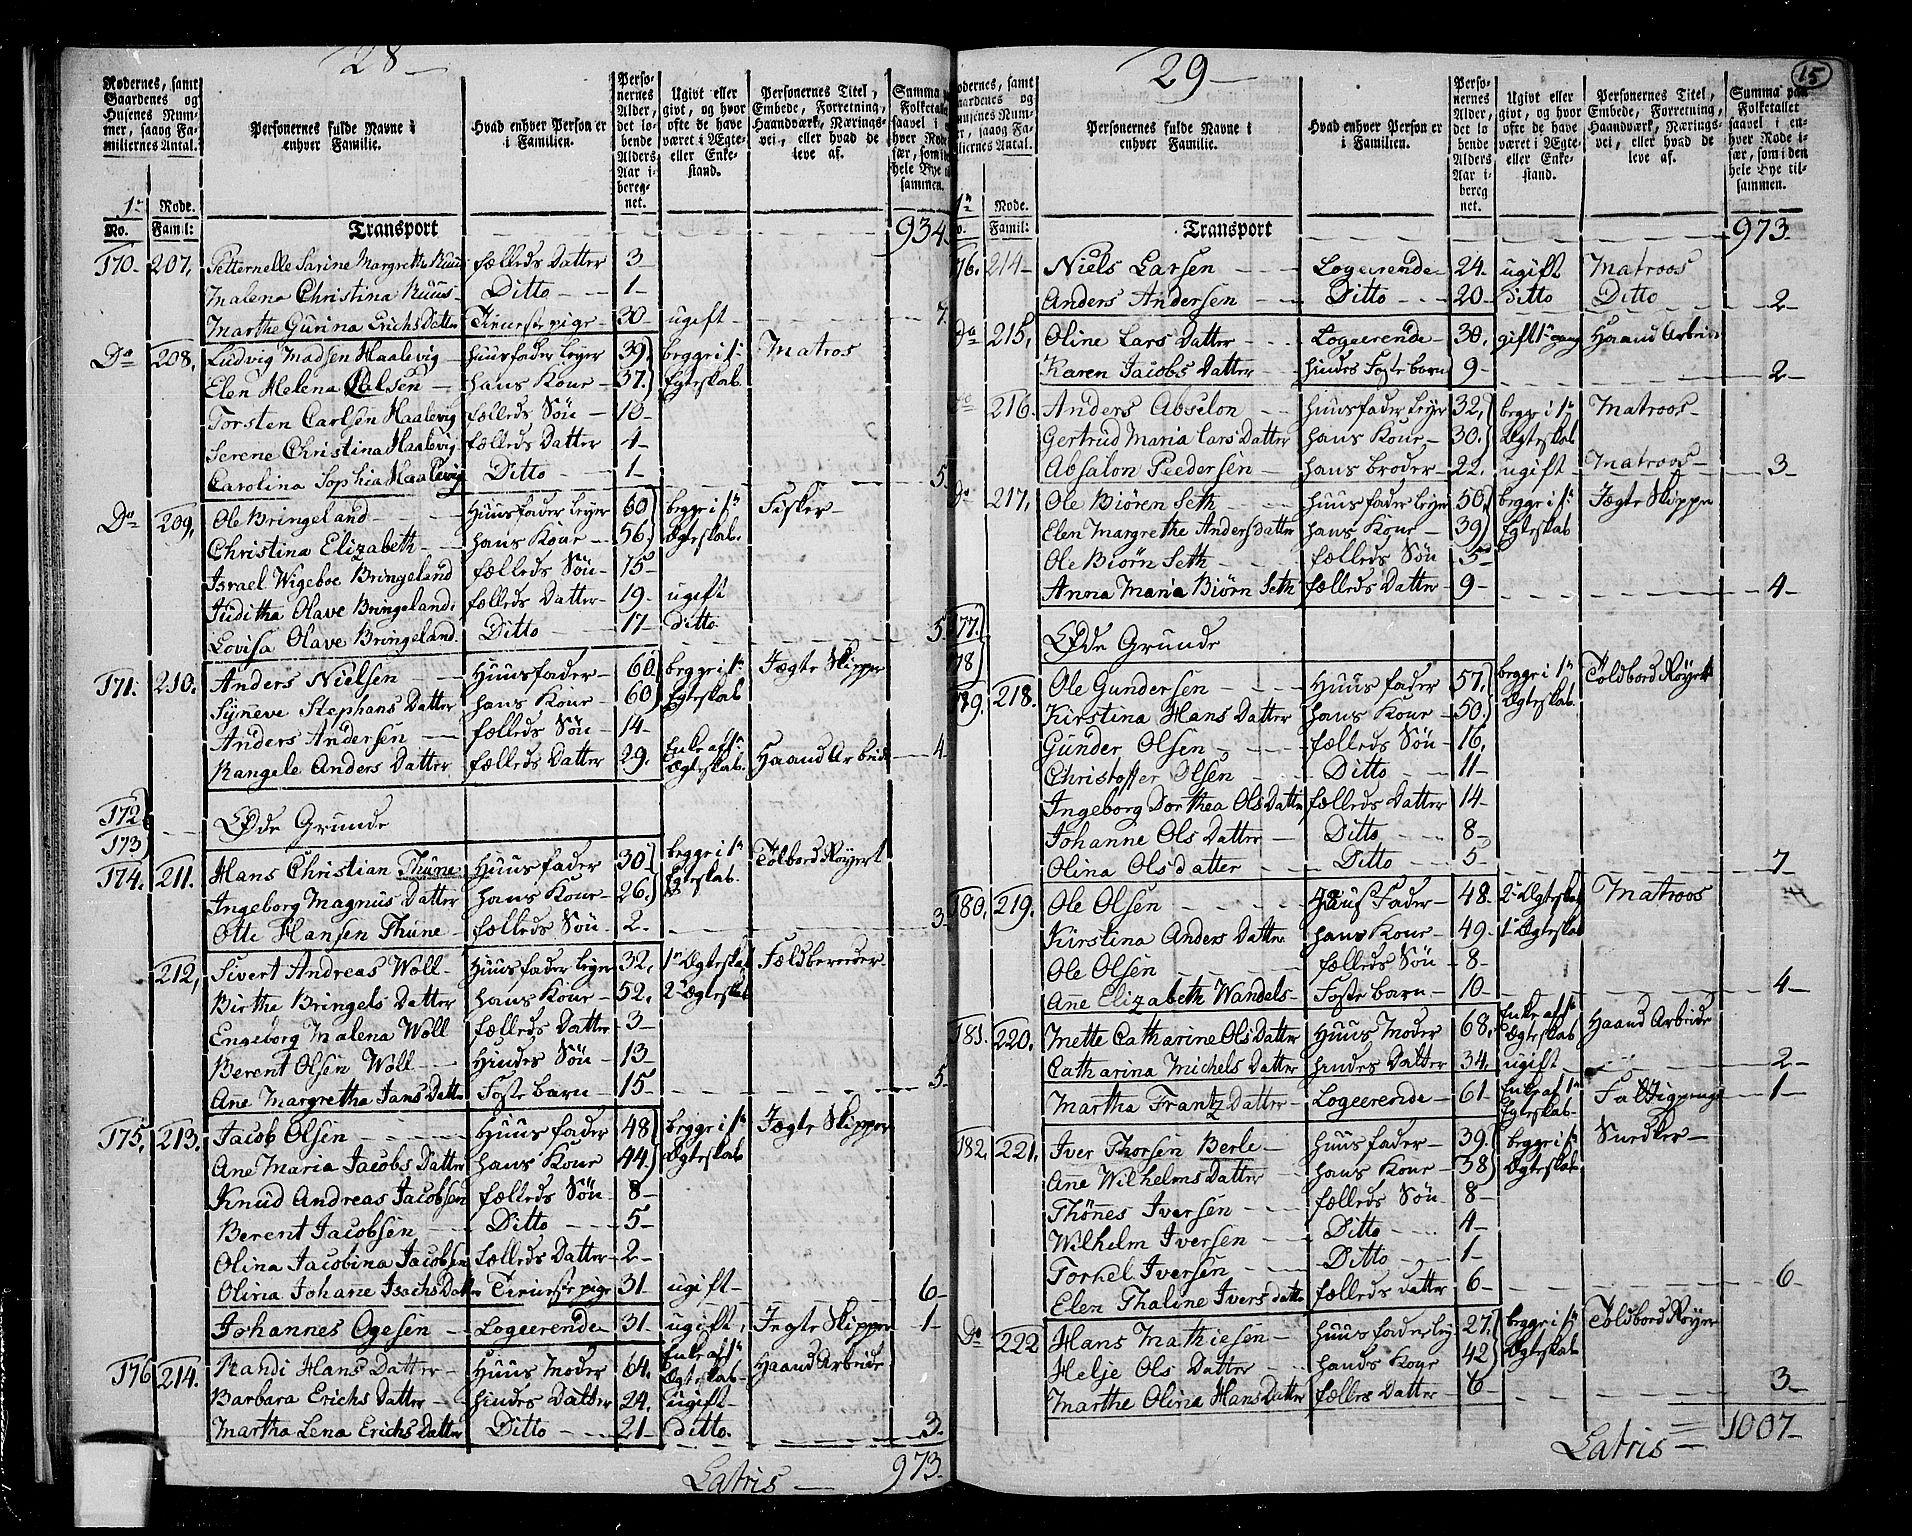 28
Rodernes, samt Gaardenes og Husenes Nummer, saaog Familiernes Antal.
Personernes fulde Navne i enhver Familie.
Hvad enhver Person er i Familien.
Personernes Alder, det løbende Alders Aar iberegnet.
Ugivt eller givt, og hvor ofte de have været i Ægte- eller Enkestand.
Personernes Titel, Embede, Forretning, Haandværk, Næringsvei, eller hvad de leve af.
1te Rode.
No. Famil:
Transport 934
170. 207. Petternelle Sarine Margrethe Kuus fælleds Datter 3
Malena Christina Kuus Ditto 1
Marthe Gurina Erichs Datter Tieneste pige 30 ugift 7
Do 208. Ludvig Madsen Haalevig huusfader leyer 39 begge i 1te Matros
Elen Helena Calsen hans Kone 37 Egteskab
Torsten Carlsen Haalevig fælleds Søn 10
Serene Christina Haalevig fælleds Datter 4
Carolina Sophia Haalevig Ditto 1 5
Do 209. Ole Bringeland Huusfader leyer 60 begge i 1te Fisker
Christina Elizabeth hans Kone 56 Ægteskab
Israel Wigeboe Bringeland fælleds Søn 15
Juditha Olave Bringeland fælleds Datter 19 ugift
Lovisa Olave Bringeland Ditto 17 ditto 5
171. 210. Anders Nielsen Huusfader 60 begge i 1te Jægte Skipper
Syneve Stephans Datter hans Kone 60 Egteskab
Anders Andersen fælleds Søn 14
Rangele Anders Datter fælleds Datter 29 Enke af 1te Ægteskab Haand Arbeide 4
172
173 Øde Grunde
174. 211. Hans Christian Thune Huusfader 30 begge i 1te Tolbord Røyert
Ingeborg Magnus Datter hans Kone 26 Egteskab
Otte Hansen Thune fælleds Søn 2 3
212. Sivert Andreas Woll Huusfader leyer 32 1te Ægteskab Fældbereeder
Birthe Bringels Datter hans Kone 52 2de Egteskab
Engeborg Malena Woll fælleds Datter 3
Berent Olsen Woll Hindes Søn 13
Ane Margretha Jans Datter Foste barn 15 5
175. 213. Jacob Olsen Huusfader 48 begge i 1te Jægte Skipper
Ane Maria Jacobs Datter hans Kone 44 Ægteskab
Knud Andreas Jacobsen fælleds Søn 8
Berent Jacobsen Ditto 5
Olina Jacobina Jacobsen fælleds Datter 2
Olina Johane Isachs Datter Tieneste pige 31 ugift 6
Johannes Ogesen Logeerende 31 ugift Jegte Skipper 1
176 214. Randi Hans Datter Huus Moder 64 Enke af 1te Ægteskab Haand Arbeide
Barbara Erichs Datter hindes Datter 24 ugift
Martha Lena Erichs Datter Ditto 21 ditto 3
Latris 973
29
15
Personernes fulde Navne i enhver Familie.
Hvad enhver Person er i Familien.
Personernes Alder, det løbende Alders Aar iberegnet.
Ugivt eller givt, og hvor ofte de have været i Ægte- eller Enkestand.
Personernes Titel, Embede, Forretning, Haandværk, Næringsvei, eller hvad de leve af.
Summa paa Folketallet saavel i enhver Rode især, som i den hele Bye tilsammen.
Rode.
Famil:
Transport 973
76. 214 Niels Larsen Logeerende 24 ugift Matroos
Anders Andersen Ditto 20 Ditto Ditto 2
Do 215. Oline Lars Datter Logeerende 30 gift 1te gang Haand Arbeid
Karen Jacobs Datter hindes Foste barn 9 2
216. Anders Abselon huusfader leyer 32 begge i 1te Matroos
Gertrud Maria Lars Datter hans Kone 30 Ægteskab
Absalon Peedersen hans broder 22 ugift Matroos 3
Do 217. Ole Biøren Seth Huusfader leyer 50 begge i 1te Jægte Skipper
Elen Margrethe Anders datter hans Kone 39 Egteskab
Ole Biørn Seth fælleds Søn 5
Anna Maria Biørn Seth fælleds Datter 9 4
77.
78 Øde Grunde
179. 218. Ole Gundersen Huusfader 57 begge i 1te Toldbord Røyert
Kirstina Hans Datter hans Kone 50 Ægteskab
Gunder Olsen fælleds Søn 16
Christoffer Olsen Ditto 11
Ingeborg Dorthea Ols Datter fælleds Datter 14
Johanne Ols Datter Ditto 8
Olina Olsdatter Ditto 5 7
180. 219. Ole Olsen Huus Fader 48 2de Ægteskab Matroos
Kirstina Anders Datter hans Kone 49 1te Ægteskab
Ole Olsen fælleds Søn 8
Ane Elizabeth Wandels Foste barn 10 4
181. 220. Mette Catharine Ols Datter Huus Moder 68 Enke af 1te Ægteskab Haand Arbeide
Catharina Michels Datter hindes Datter 34 ugift 2
Martha Frantz Datter Logeerende 61 Enke af 1te Egteskab 1
182. 221. Iver Thorsen Berle huus fader 39 begge i 1te Snedker
Ane Wilhelms Datter hans Kone 38 Ægteskab
Thønes Iversen fælleds Søn 8
Wilhelm Iversen Ditto 4
Torkel Iversen Ditto 1
Elen Thaline Ivers datter fælleds datter 6 6
Do 222 Hans Mathiesen huus fader ley 27 begge i 1te Toldbord Røyer
Helje Ols Datter hands Kone 42 Ægteskab
Marthe Olina Hans Datter fælles Datter 6 3
Latris 1007